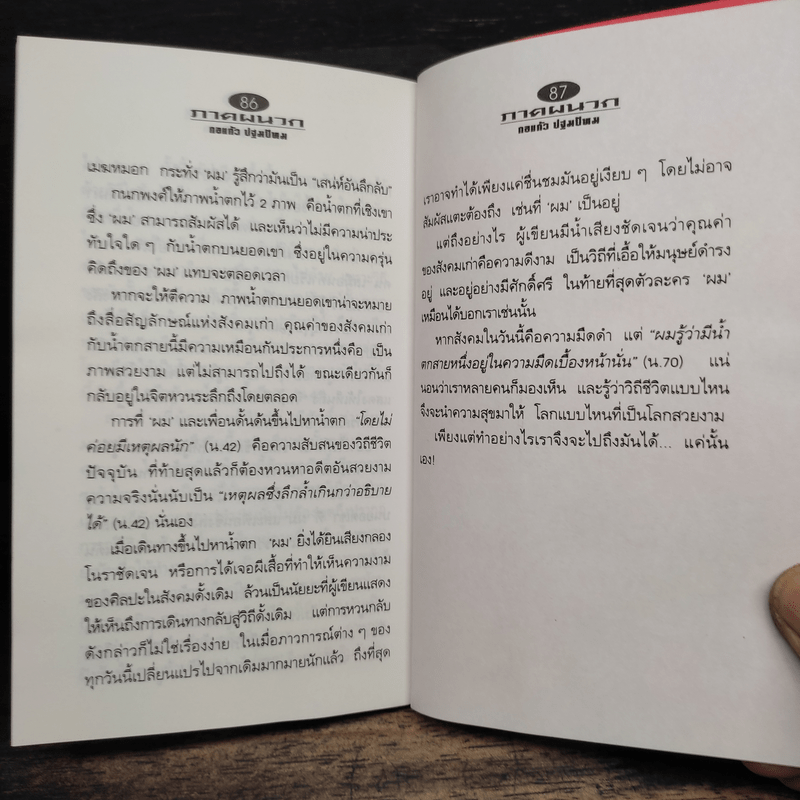 86
ภาคผนวก
กอแก้ว ปฐมปัทม
เมฆหมอก กระทั่ง 'ผม' รู้สึกว่ามันเป็น "เสน่ห์อันลึกลับ"
กนกพงศ์ให้ภาพน้ำตกไว้ 2 ภาพ คือน้ำตกที่เชิงเขา
ซึ่ง 'ผม' สามารถสัมผัสได้ และเห็นว่าไม่มีความน่าประ
ทับใจใด ๆ กับน้ำตกบนยอดเขา ซึ่งอยู่ในความครุ่น
คิดถึงของ 'ผม' แทบจะตลอดเวลา
หากจะให้ตีความ ภาพน้ำตกบนยอดเขาน่าจะหมาย
ถึงสื่อสัญลักษณ์แห่งสังคมเก่า คุณค่าของสังคมเก่า
กับน้ำตกสายนี้มีความเหมือนกันประการหนึ่งคือ เป็น
ภาพสวยงาม แต่ไม่สามารถไปถึงได้ ขณะเดียวกันก็
กลับอยู่ในจิตหวนระลึกถึงโดยตลอด
การที่ 'ผม' และเพื่อนดั้นด้นขึ้นไปหาน้ำตก "โดยไม่
ค่อยมีเหตุผลนัก" (น.42) คือความสับสนของวิถีชีวิต
ปัจจุบัน ที่ท้ายสุดแล้วก็ต้องหวนหาอดีตอันสวยงาม
ความจริงนั่นนับเป็น "เหตุผลซึ่งลึกล้ำเกินกว่าอธิบาย
ได้" (น.42) นั่นเอง
เมื่อเดินทางขึ้นไปหาน้ำตก 'ผม' ยิ่งได้ยินเสียงกลอง
โนราชัดเจน หรือการได้เจอผีเสื้อที่ทำให้เห็นความงาม
ของศิลปะในสังคมดั้งเดิม ล้วนเป็นนัยยะที่ผู้เขียนแสดง
ให้เห็นถึงการเดินทางกลับสู่วิถีดั้งเดิม แต่การหวนกลับ
ดังกล่าวก็ไม่ใช่เรื่องง่าย ในเมื่อภาวการณ์ต่าง ๆ ของ
ทุกวันนี้เปลี่ยนแปรไปจากเดิมมากมายนักแล้ว ถึงที่สุด
87
ภาคผนวก
กอแก้ว ปฐมปัทม
เราอาจทำได้เพียงแค่ชื่นชมมันอยู่เงียบ ๆ โดยไม่อาจ
สัมผัสแตะต้องถึง เช่นที่ 'ผม' เป็นอยู่
แต่ถึงอย่างไร ผู้เขียนมีน้ำเสียงชัดเจนว่าคุณค่า
ของสังคมเก่าคือความดีงาม เป็นวิถีที่เอื้อให้มนุษย์ดำรง
อยู่ และอยู่อย่างมีศักดิ์ศรี ในท้ายที่สุดตัวละคร 'ผม'
เหมือนได้บอกเราเช่นนั้น
หากสังคมในวันนี้คือความมืดดำ แต่ "ผมรู้ว่ามีน้ำ
ตกสายหนึ่งอยู่ในความมืดเบื้องหน้านั่น" (น.70) แน่
นอนว่าเราหลายคนก็มองเห็น และรู้ว่าวิถีชีวิตแบบไหน
จึงจะนำความสุขมาให้ โลกแบบไหนที่เป็นโลกสวยงาม
เพียงแต่ทำอย่างไรเราจึงจะไปถึงมันได้... แค่นั้น
เอง!